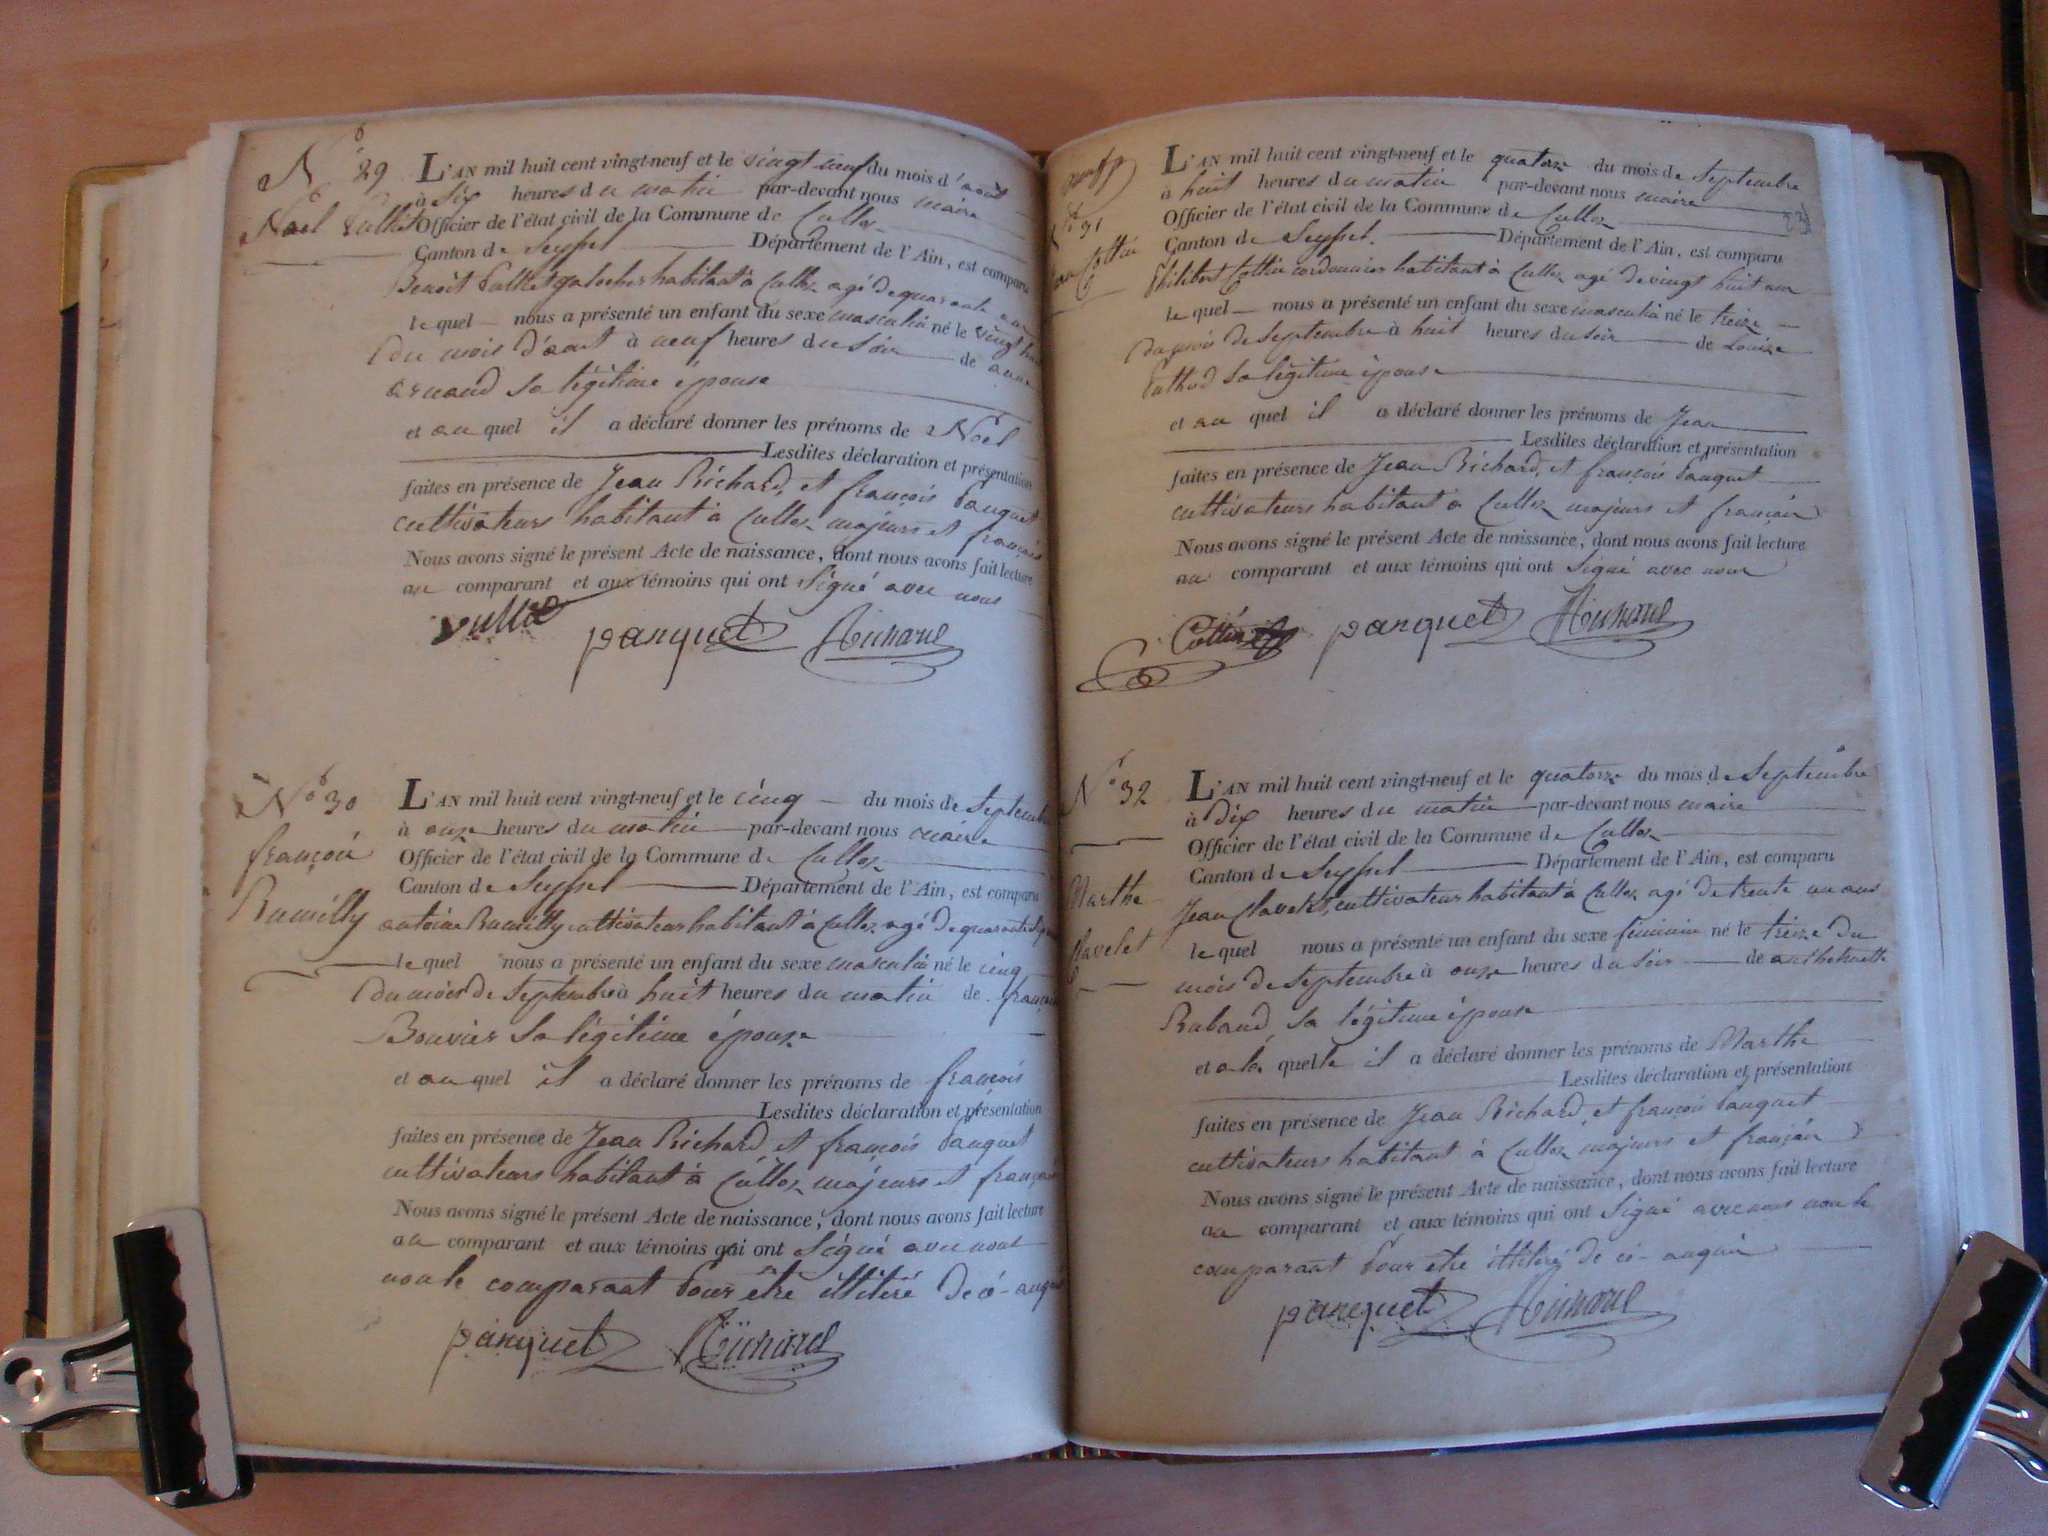 N° 29
Noel Vulliet
L'AN mil huit cent vingt-neuf et le vingt neuf du mois d'août
à six heures du matin par-devant nous maire
Officier de l'état civil de la Commune de Culloz
Canton de Seyssel Département de l'Ain, est comparu
Benoît Vulliet galocher habitant à Culloz agé de quarante ans
le quel nous a présenté un enfant du sexe masculin né le vingt huit
du mois d'aout à neuf heures du soir de anne
arnaud sa légitime épouse
et au quel il a déclaré donner les prénoms de Noel
Lesdites déclaration et présentation
faites en présence de Jean Richard, et françois Panquet
cultivateurs habitant à Culloz majeurs et français
Nous avons signé le présent Acte de naissance, dont nous avons fait lecture
au comparant et aux témoins qui ont signé avec nous
vulliet
panquet Richard
N° 30
françois
Rumilly
L'AN mil huit cent vingt-neuf et le cinq du mois de septembre
à onze heures du matin par-devant nous maire
Officier de l'état civil de la Commune de Culloz
Canton de Seyssel Département de l'Ain, est comparu
antoine Rumilly cultivateur habitant à Culloz agé de quarante
le quel nous a présenté un enfant du sexe masculin né le cinq
du mois de septembre à huit heures du matin de françoise
Bouvier sa légitime épouse
et au quel il a déclaré donner les prénoms de françois
Lesdites déclaration et présentation
faites en présence de Jean Richard, et françois Panquet
cultivateurs habitant à Culloz majeurs et français
Nous avons signé le présent Acte de naissance, dont nous avons fait lecture
au comparant et aux témoins qui ont signé avec nous
non le comparant pour être illitéré de ce enquis
panquet Richard
N° 31
Jean Cottin
L'AN mil huit cent vingt-neuf et le quatorze du mois de septembre
à huit heures du matin par-devant nous maire
Officier de l'état civil de la Commune de Culloz
Canton de Seyssel Département de l'Ain, est comparu
Philibert Cottin cordonnier habitant à Culloz agé de vingt huit ans
le quel nous a présenté un enfant du sexe masculin né le treize
du mois de septembre à huit heures du soir de Louise
Puthod sa légitime épouse
et au quel il a déclaré donner les prénoms de Jean
Lesdites déclaration et présentation
faites en présence de Jean Richard, et françois Panquet
cultivateurs habitant à Culloz majeurs et français
Nous avons signé le présent Acte de naissance, dont nous avons fait lecture
au comparant et aux témoins qui ont signé avec nous
Cottin panquet Richard
N° 32
Marthe
Clavelet
L'AN mil huit cent vingt-neuf et le quatorze du mois de septembre
à dix heures du matin par-devant nous maire
Officier de l'état civil de la Commune de Culloz
Canton de Seyssel Département de l'Ain, est comparu
Jean Clavelet, cultivateur habitant à Culloz agé de trente un ans
le quel nous a présenté un enfant du sexe féminin né le treize du
mois de septembre à onze heures du soir de anthelmette
Rubaud, sa légitime épouse
et a la quelle il a déclaré donner les prénoms de Marthe
Lesdites déclaration et présentation
faites en présence de Jean Richard, et françois Panquet
cultivateurs habitant à Culloz majeurs et français
Nous avons signé le présent Acte de naissance, dont nous avons fait lecture
au comparant et aux témoins qui ont signé avec nous non le
comparant pour être illitéré de ce enquis
panquet Richard